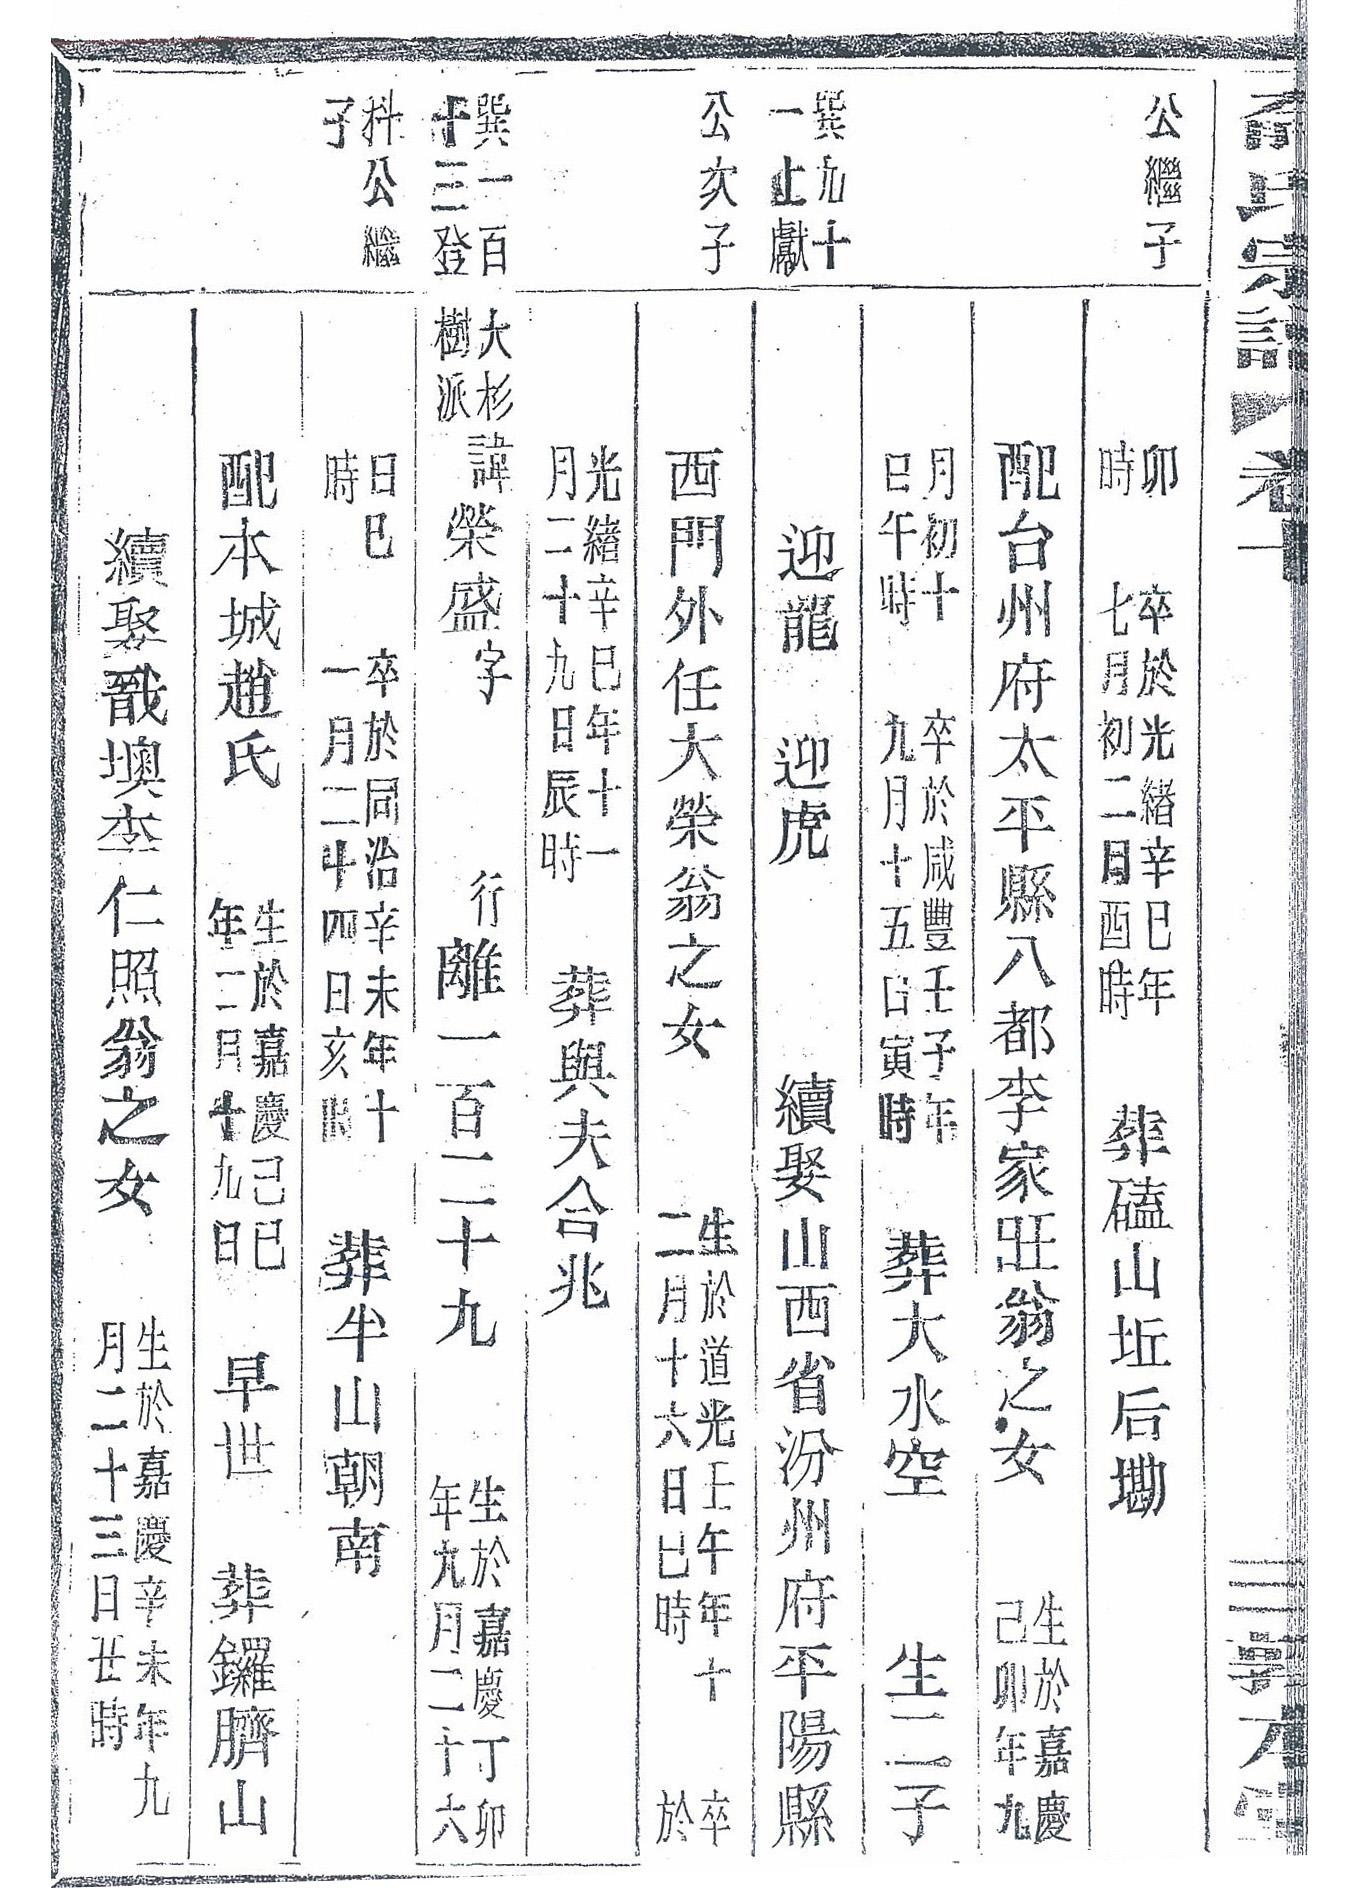 氏宗譜 卷十
公繼子
卯時 卒於光緒辛巳年七月初二日酉時 葬磕山坵后墈
配台州府太平縣八都李家旺翁之女 生於嘉慶己卯年九
月初十日午時 卒於咸豐壬子年九月十五日寅時 葬大水空 生二子
巽九十一上獻
迎龍 迎虎 續娶山西省汾州府平陽縣
公次子
西門外任大榮翁之女 生於道光壬午年十二月十六日巳時 卒於
光緒辛巳年十一月二十九日辰時 葬與夫合兆
巽一百十三登
大杉樹派 諱榮盛 字 行離一百二十九 生於嘉慶丁卯年九月二十六
抖公繼子
日巳時 卒於同治辛未年十一月二十四日亥時 葬半山朝南
配本城趙氏 生於嘉慶己巳年二月十九日 早世 葬鑼臍山
續娶戩墺李仁照翁之女 生於嘉慶辛未年九月二十三日丑時